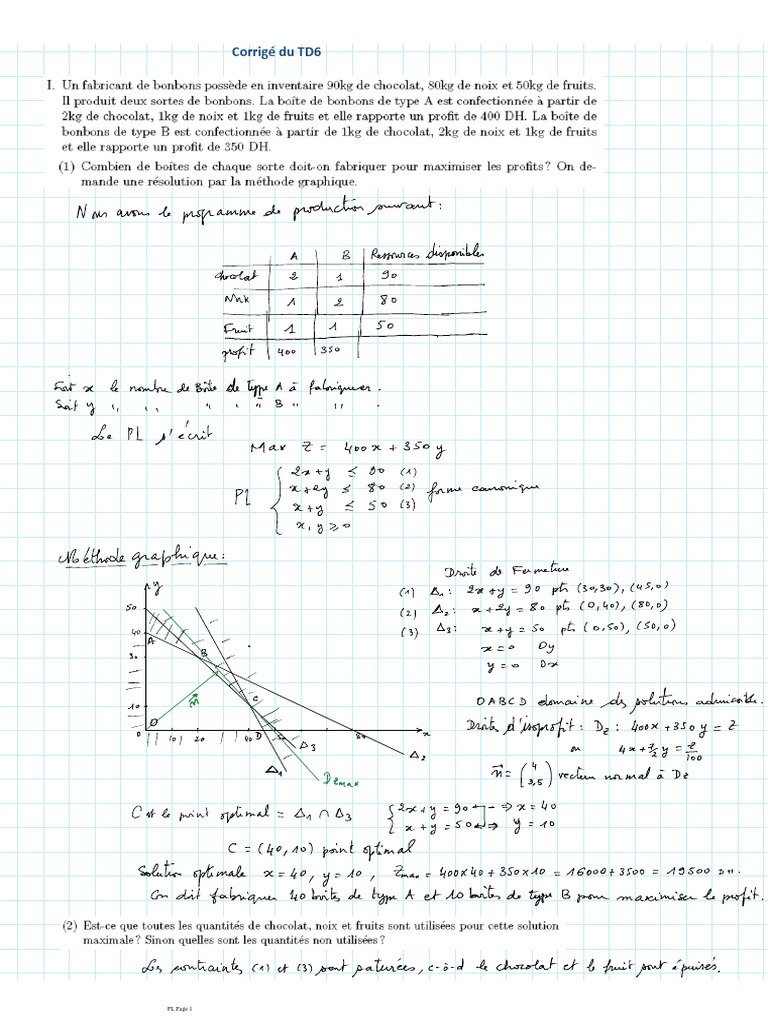 Corrigé du TD6
I. Un fabricant de bonbons possède en inventaire 90kg de chocolat, 80kg de noix et 50kg de fruits.
Il produit deux sortes de bonbons. La boîte de bonbons de type A est confectionnée à partir de
2kg de chocolat, 1kg de noix et 1kg de fruits et elle rapporte un profit de 400 DH. La boîte de
bonbons de type B est confectionnée à partir de 1kg de chocolat, 2kg de noix et 1kg de fruits
et elle rapporte un profit de 350 DH.
(1) Combien de boîtes de chaque sorte doit-on fabriquer pour maximiser les profits? On de-
mande une résolution par la méthode graphique.
Nous avons le programme de production suivant :
A B Ressources disponibles
chocolat 2 1 90
1 2 80
Fruit 1 1 50
profit 400 350
Soit x le nombre de Boîte de type A à fabriquer.
Soit y " " " " " B " " .
Le PL s'écrit
Max Z = 400x + 350y
PL
2x+y ≤ 90 (1)
x+2y ≤ 80 (2) forme canonique
x+y ≤ 50 (3)
x, y ≥ 0
Méthode graphique :
Droite de Fermeture
(1) Δ1 : 2x+y = 90 pts (30,30), (45,0)
(2) Δ2 : x+2y = 80 pts (0,40), (80,0)
(3) Δ3 : x+y = 50 pts (0,50), (50,0)
x=0 Oy
y=0 Ox
y
50
40
A
30
B
n
C
10
O
0 10 20 40 D 50 80 x
Δ1 Δ3 Δ2
DZmax
OABCD domaine des solutions admissibles.
Droite d'isoprofit : DZ : 400x + 350y = Z
ou 4x + 7/2 y = Z/100
n = (4 3,5) vecteur normal à DZ
C est le point optimal = Δ1 ∩ Δ3
2x+y = 90 ⇒ x=40
x+y = 50 ⇒ y=10
C = (40,10) point optimal
Solution optimale x=40, y=10, Zmax = 400x40 + 350x10 = 16000+3500 = 19500 DH.
On doit fabriquer 40 boîtes de type A et 10 boîtes de type B pour maximiser le profit.
(2) Est-ce que toutes les quantités de chocolat, noix et fruits sont utilisées pour cette solution
maximale? Sinon quelles sont les quantités non utilisées?
Les contraintes (1) et (3) sont saturées, c-à-d le chocolat et le fruit sont épuisés.
PL Page 1